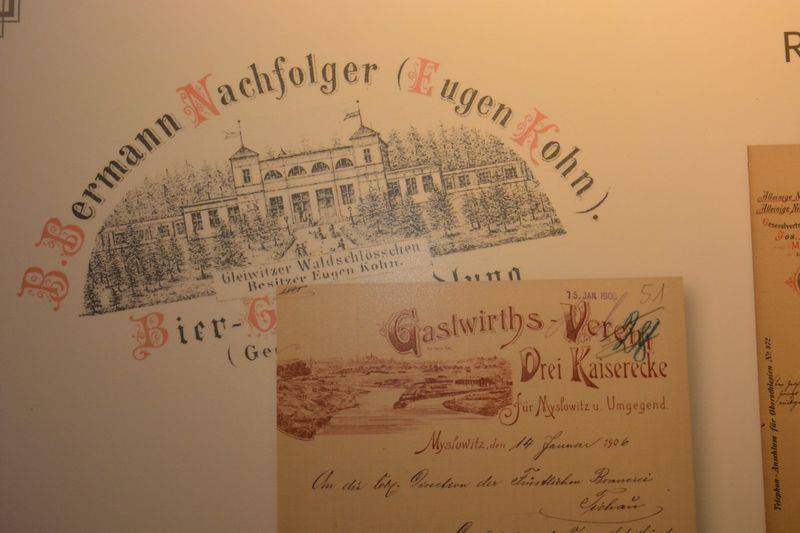 B. Bermann Nachfolger (Eugen Kohn).
Gleiwitzer Waldschlösschen
Besitzer Eugen Kohn.
Bier-G lung
(Ge
15. JAN. 1906
51
Gastwirths-Verein
Drei Kaiserecke
für Myslowitz u. Umgegend.
Myslowitz, den 14 Januar 1906
An die Direction der Fürstlichen Brauerei
Tichau
R
Alleinige N
Alleinige N
Generalvertr
Jos.
M
Telephon-Anschluss für Oberschlesien Nr. 972.